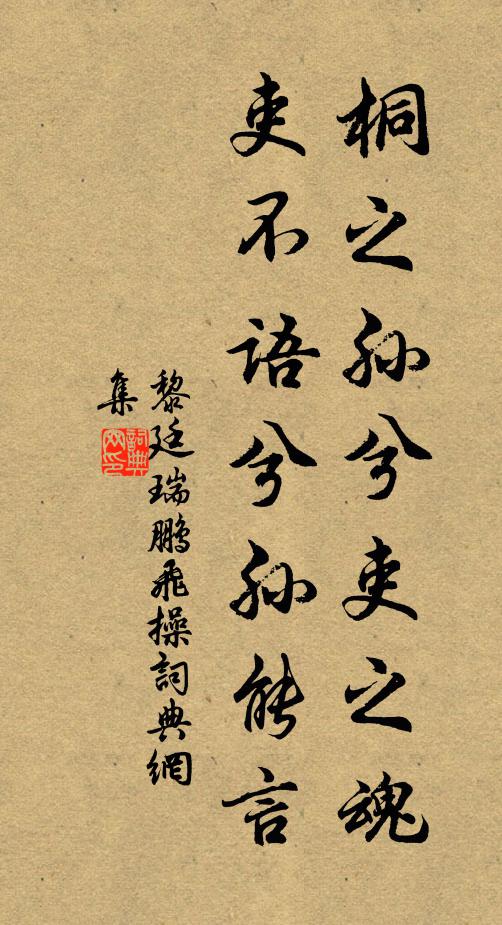 桐之孙兮吏之魂
吏不语兮孙能言
黎廷瑞鹏飛操詞典網
集
詞典
网印